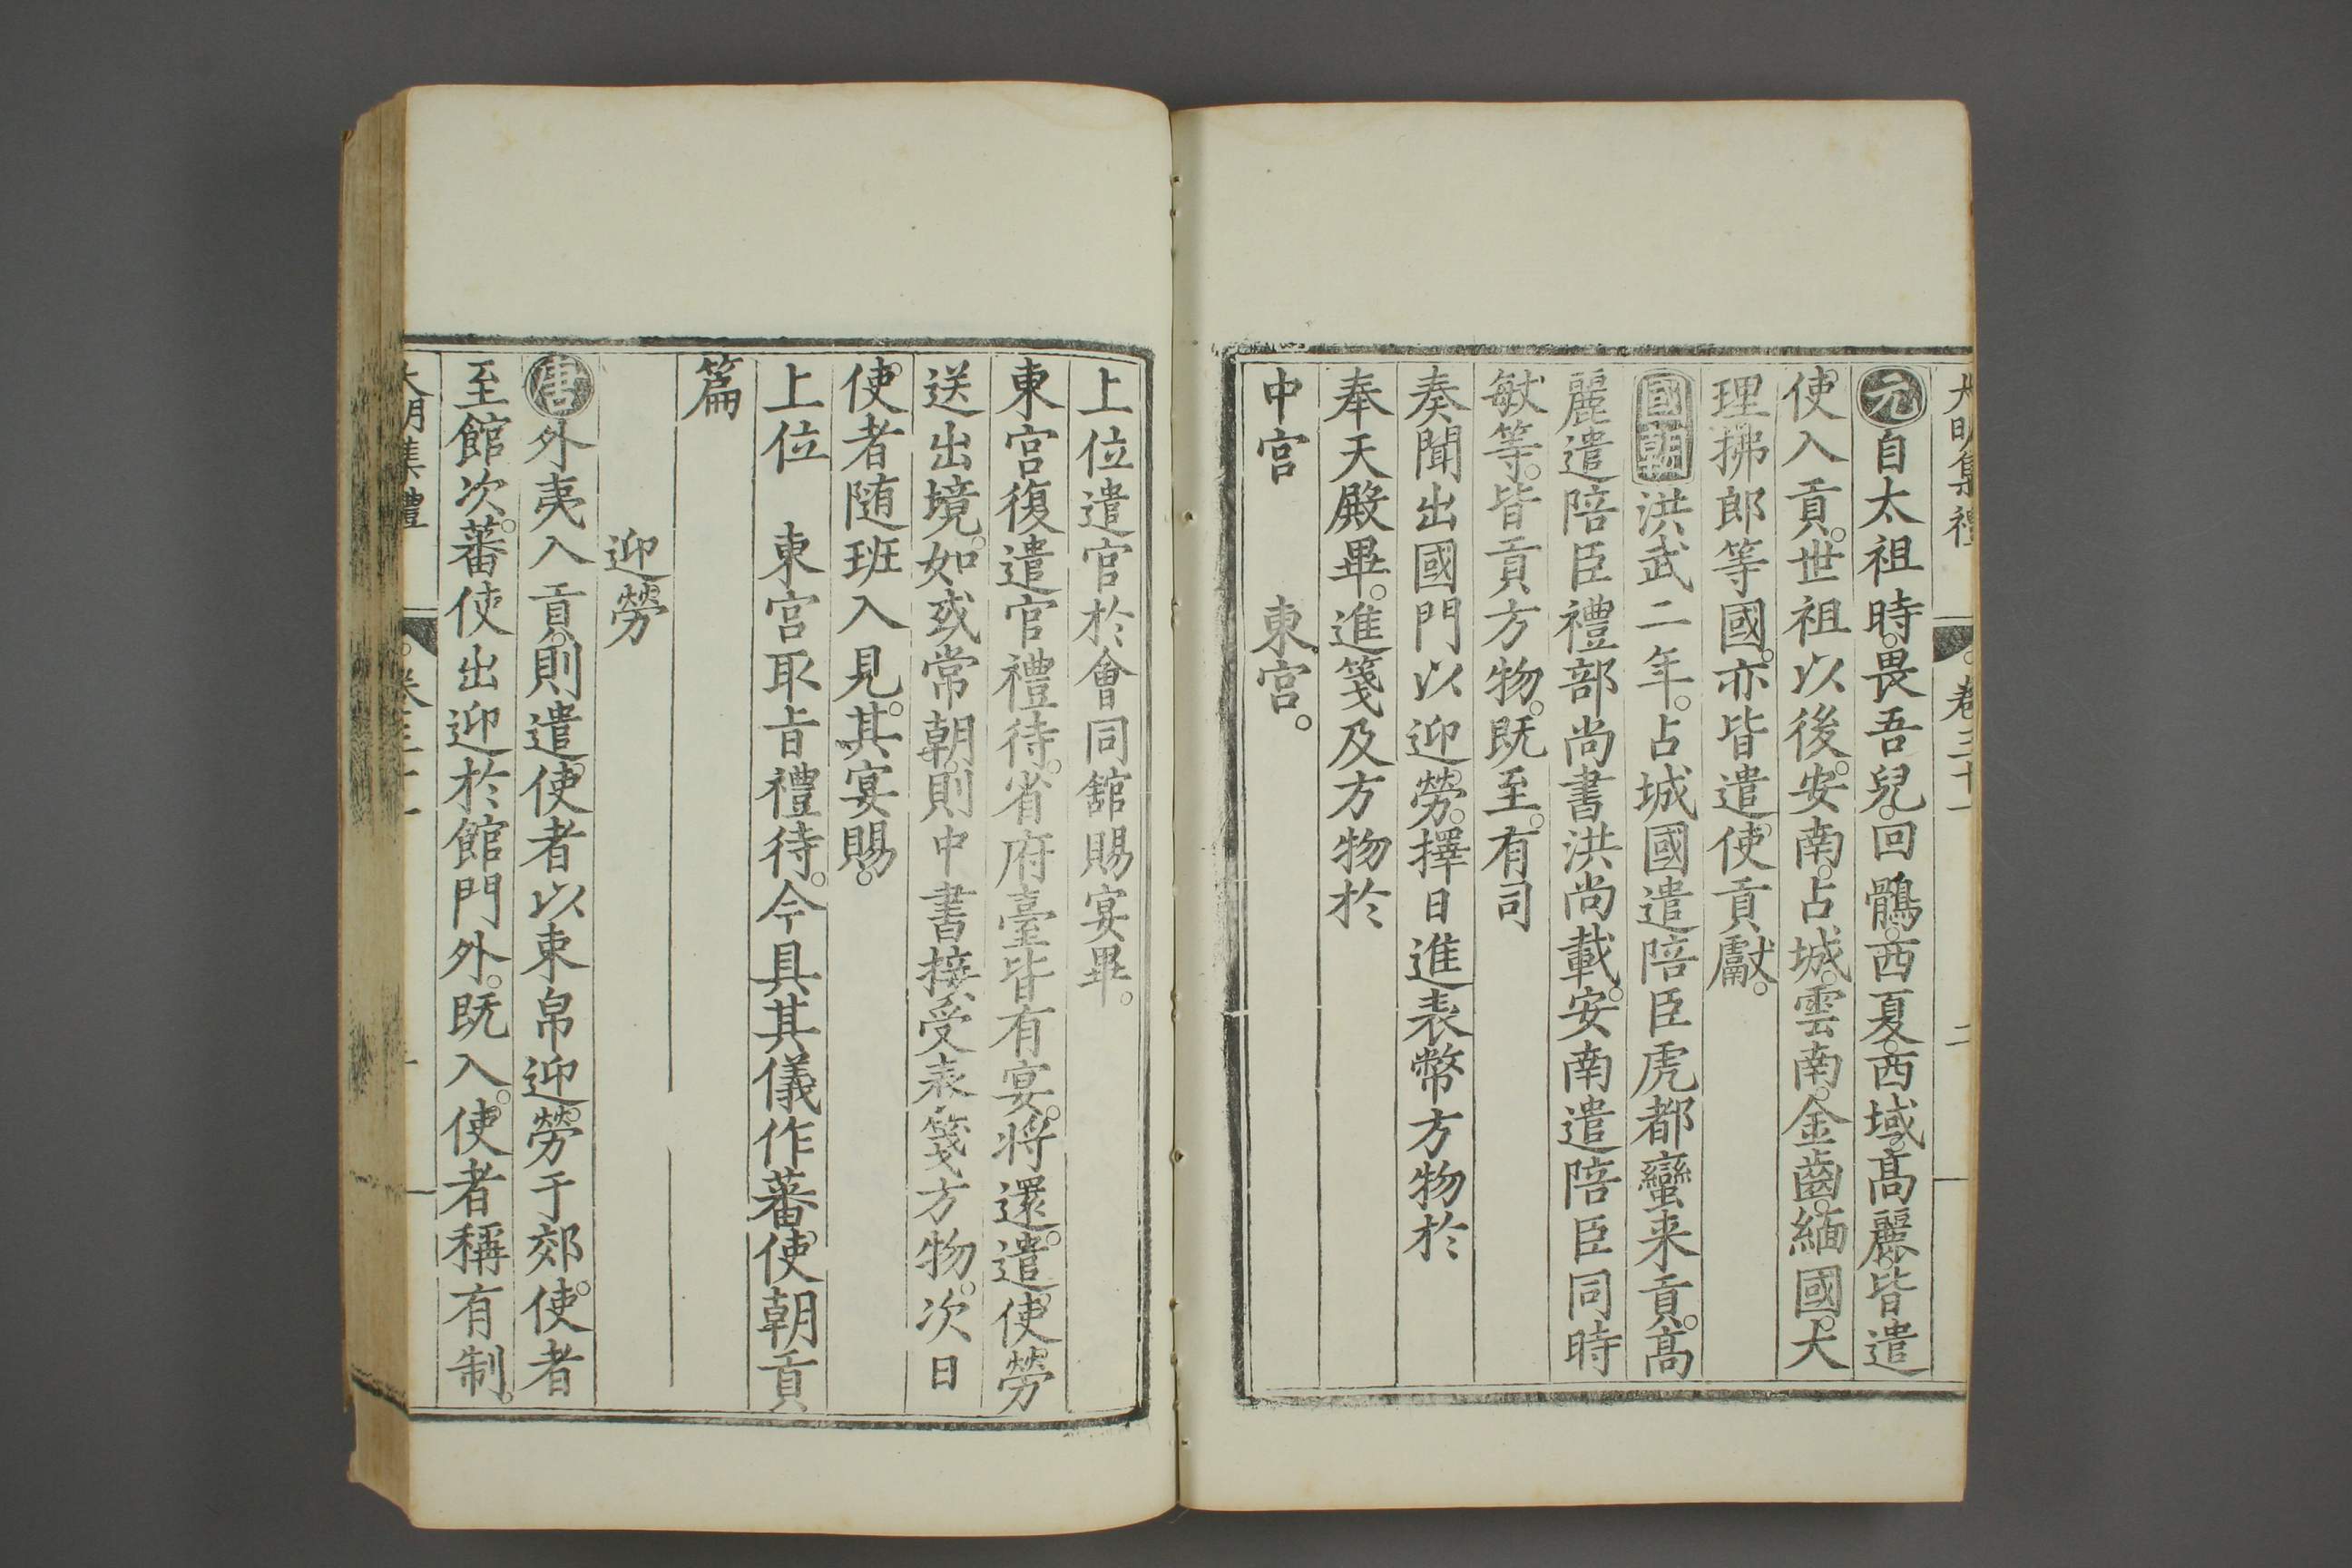 大明集禮 卷三十一 二
元自太祖時。畏吾兒。回鶻。西夏。西域。髙麗。皆遣
使入貢。世祖以後。安南。占城。雲南。金齒。緬國。大
理拂郎等國。亦皆遣使貢獻。
國朝洪武二年。占城國遣陪臣虎都蠻来貢。髙
麗遣陪臣禮部尚書洪尚載。安南遣陪臣同時
敏等。皆貢方物。既至。有司
奏聞出國門以迎勞。擇日進表幣方物於
奉天殿畢。進箋及方物於
中宫 東宫。
上位遣官於會同舘賜宴畢。
東宫復遣官禮待。省府臺皆有宴。将還。遣使勞
送出境。如或常朝。則中書接受表箋方物。次日
使者随班入見。其宴賜。
上位 東宫取旨禮待。今具其儀作蕃使朝貢
篇
迎勞
唐外夷入貢。則遣使者以束帛迎勞于郊。使者
至館次。蕃使出迎於館門外。既入。使者稱有制。
大明集禮 卷三十一